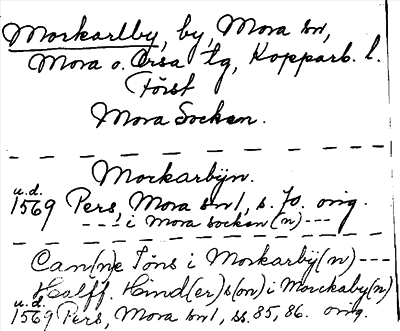 Morkarlby, by, Mora sn,
Mora o. Orsa tg, Kopparb. l.
Först
Mora Socken.
Morkarbÿn.
u.d.
1569 Pers, Mora sn1, s. 70. orig.
--- i Mora socken (n) ---
Can(n)e Jöns i Morkarbÿ(n) ---
Halff. Hind(er)s(on) i Morckaby(n)
u.d.
1569 Pers, Mora sn1, ss. 85, 86. orig.